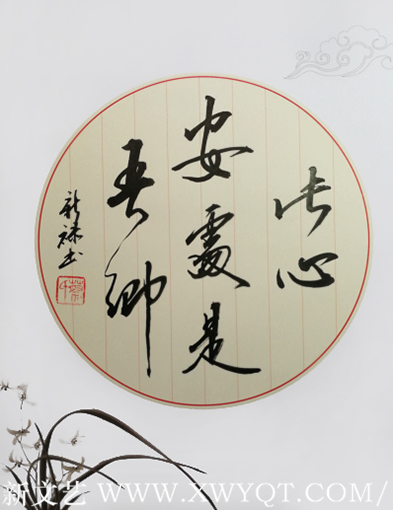 此心
安處是
吾鄉
新禄书
新文艺 WWW.XWYQT.COM/